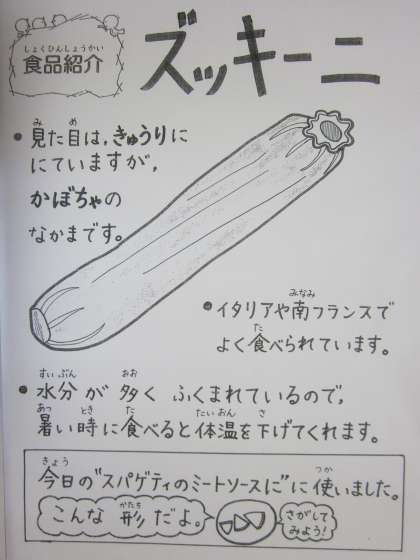 しょくひんしょうかい
食品紹介
ズッキーニ
み め
・見た目は，きゅうりに
にていますが，
かぼちゃの
なかまです。
みなみ
・イタリアや南フランスで
た
よく食べられています。
すいぶん おお
・水分が多くふくまれているので，
あつ とき た たいおん さ
暑い時に食べると体温を下げてくれます。
きょう つか
今日の"スパゲティのミートソースに"に使いました。
かたち
こんな形だよ。
さがして
みよう!